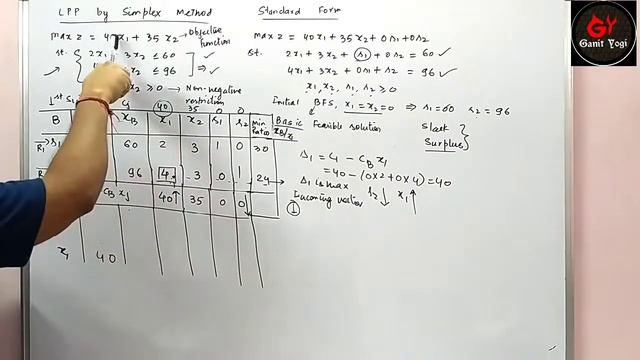 LPP by Simplex Method
Max Z = 40x₁ + 35x₂ → Objective function
st. 2x₁ + 3x₂ ≤ 60
x₂ ≤ 96
x₂ ≥ 0 → Non-negative restriction
Standard Form
Max Z = 40x₁ + 35x₂ + 0s₁ + 0s₂
st. 2x₁ + 3x₂ + s₁ + 0s₂ = 60 ✓
4x₁ + 3x₂ + 0s₁ + s₂ = 96 ✓
x₁, x₂, s₁, s₂ ≥ 0
Initial BFS, x₁ = x₂ = 0 ⇒ s₁ = 60 s₂ = 96
Basic Feasible solution
Slack
Surplus
Cj 40 35 0 0
B XB x₁ x₂ s₁ s₂ min Ratio XB/x₁
R₁ → s₁ 60 2 3 1 0 30
96 4 3 0 1 24 →
CB xj 40↑ 35 0 0↓
x₁ 40
Δ₁ = C₁ − CB x₁
= 40 − (0×2 + 0×4) = 40
Δ₁ is max
Incoming vector s₂↓ x₁↑
I
GY
Ganit Yogi